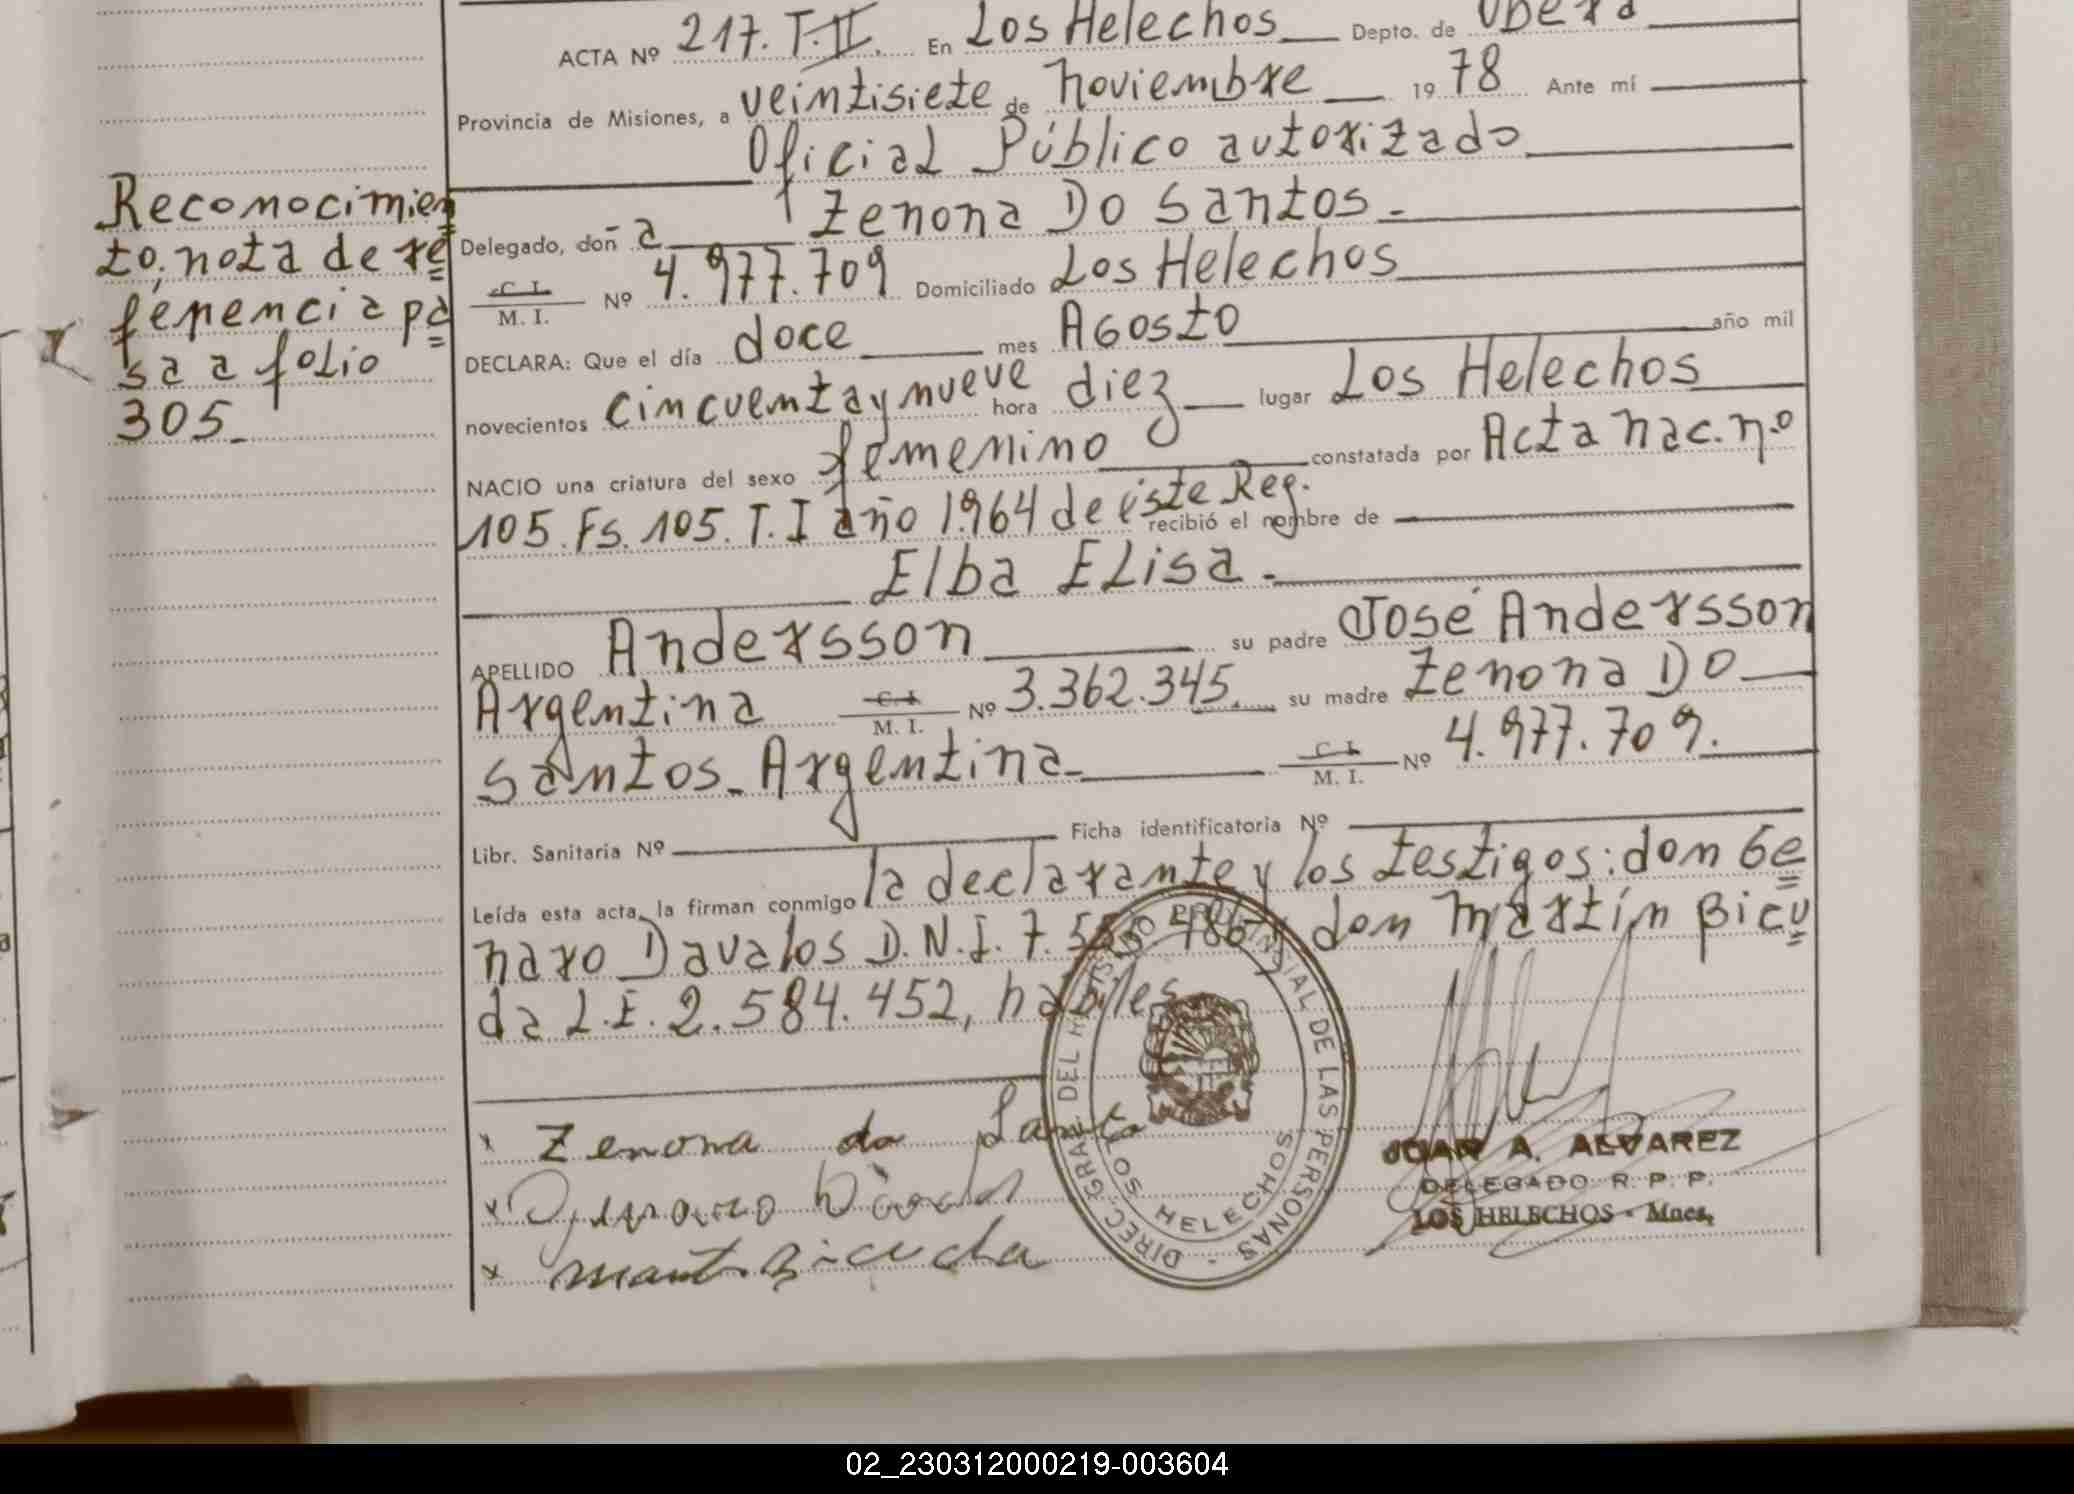 ACTA Nº 217. T. II. En Los Helechos Depto. de Oberá
Provincia de Misiones, a veintisiete de Noviembre 19 78 Ante mí
Oficial Público autorizado
Delegado, don a Zenona Do Santos.-
C. I. M. I. Nº 4.977.709 Domiciliado Los Helechos
DECLARA: Que el día doce mes Agosto año mil
novecientos cincuenta y nueve hora diez lugar Los Helechos
NACIO una criatura del sexo femenino constatada por Acta Nac. nº
105. Fs. 105. T. I año 1.964 de este Reg. recibió el nombre de
Elba Elisa.-
APELLIDO Andersson su padre José Andersson
Argentina C. I. M. I. Nº 3.362.345. su madre Zenona Do
Santos. Argentina. C. I. M. I. Nº 4.977.709.
Libr. Sanitaria Nº Ficha identificatoria Nº
Leída esta acta, la firman conmigo la declarante y los testigos: don Ge
naro Davalos D.N.I. 7. y don Martín Bicu
da L.E. 2.584.452, hábiles
Reconocimien
to, nota de re
ferencia pa
sa a folio
305.
x Zenona do Santo
x
x Mart Bicuda
DIREC. GRAL. DEL REGISTRO PROVINSIAL DE LAS PERSONAS
LOS HELECHOS
JUAN A. ALVAREZ
DELEGADO R. P. P.
LOS HELECHOS - Mnes.
02_230312000219-003604